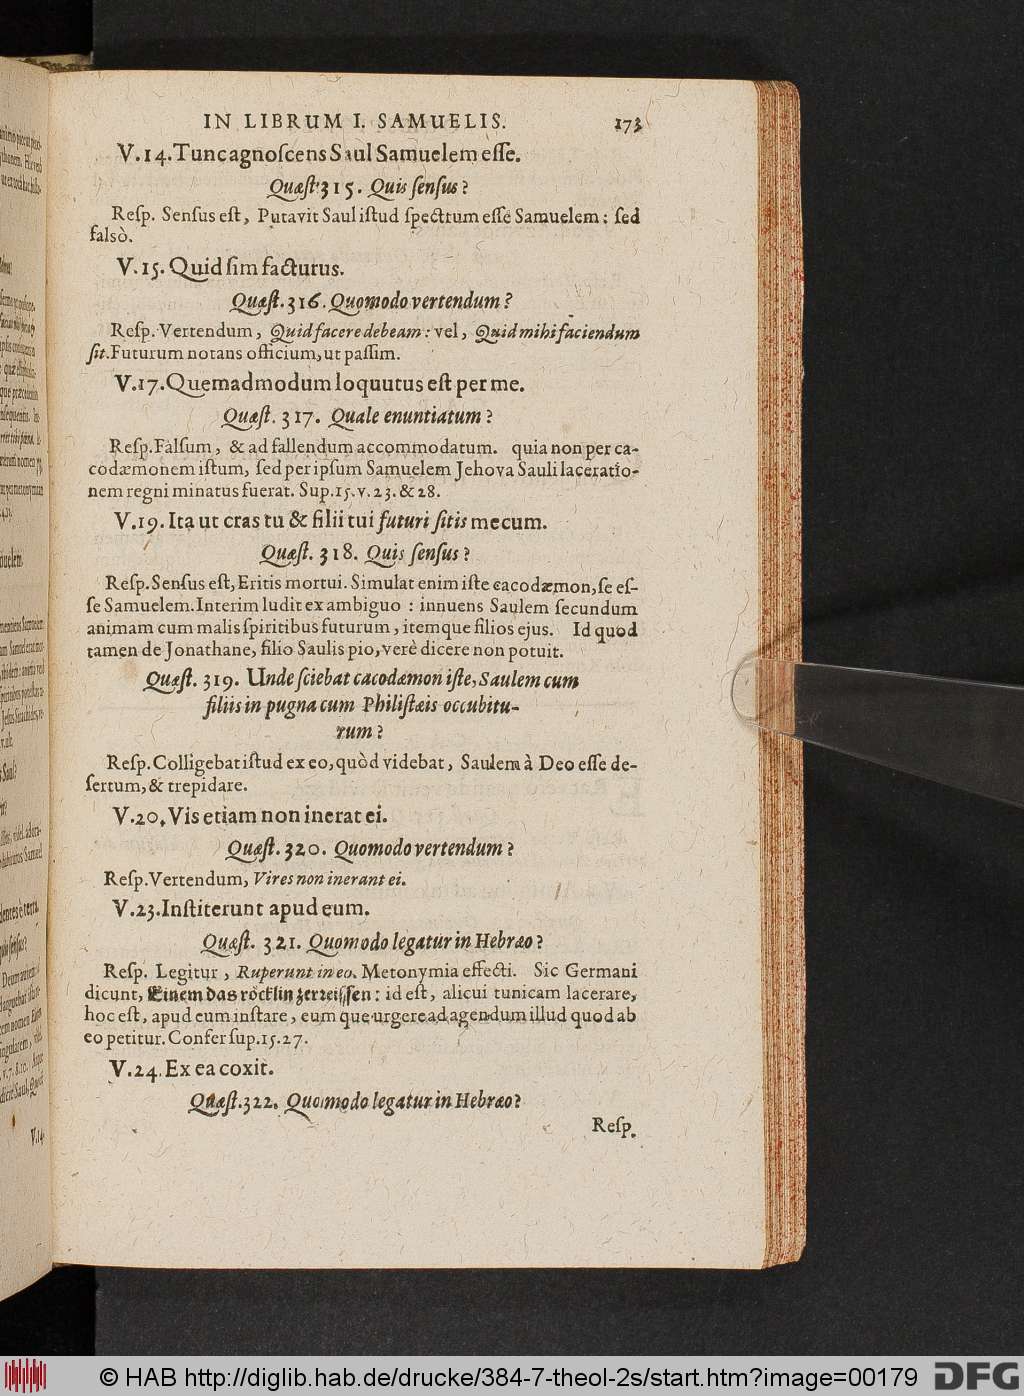 IN LIBRUM I. SAMUELIS. 173
V.14. Tunc agnoſcens Saul Samuelem eſſe.
Quæſt. 315. Quis ſenſus?
Reſp. Senſus eſt, Putavit Saul iſtud ſpectrum eſſe Samuelem: ſed
falsò.
V.15. Quid ſim facturus.
Quæſt. 316. Quomodo vertendum?
Reſp. Vertendum, Quid facere debeam: vel, Quid mihi faciendum
ſit. Futurum notans officium, ut paſſim.
V.17. Quemadmodum loquutus eſt per me.
Quæſt. 317. Quale enuntiatum?
Reſp. Falſum, & ad fallendum accommodatum. quia non per ca-
codæmonem iſtum, ſed per ipſum Samuelem Jehova Sauli laceratio-
nem regni minatus fuerat. Sup. 15. v. 23. & 28.
V.19. Ita ut cras tu & filii tui futuri ſitis mecum.
Quæſt. 318. Quis ſenſus?
Reſp. Senſus eſt, Eritis mortui. Simulat enim iſte cacodæmon, ſe eſ-
ſe Samuelem. Interim ludit ex ambiguo: innuens Saulem ſecundum
animam cum malis ſpiritibus futurum, itemque filios ejus. Id quod
tamen de Jonathane, filio Saulis pio, verè dicere non potuit.
Quæſt. 319. Unde ſciebat cacodæmon iſte, Saulem cum
filiis in pugna cum Philiſtæis occubitu-
rum?
Reſp. Colligebat iſtud ex eo, quòd videbat, Saulem à Deo eſſe de-
ſertum, & trepidare.
V.20. Vis etiam non inerat ei.
Quæſt. 320. Quomodo vertendum?
Reſp. Vertendum, Vires non inerant ei.
V.23. Inſtiterunt apud eum.
Quæſt. 321. Quomodo legatur in Hebræo?
Reſp. Legitur, Ruperunt in eo. Metonymia effecti. Sic Germani
dicunt, Einem das röcklin zerreiſſen: id eſt, alicui tunicam lacerare,
hoc eſt, apud eum inſtare, eumque urgere ad agendum illud quod ab
eo petitur. Confer ſup. 15. 27.
V.24. Ex ea coxit.
Quæſt. 322. Quomodo legatur in Hebræo?
Reſp.
V.14
© HAB http://diglib.hab.de/drucke/384-7-theol-2s/start.htm?image=00179
DFG